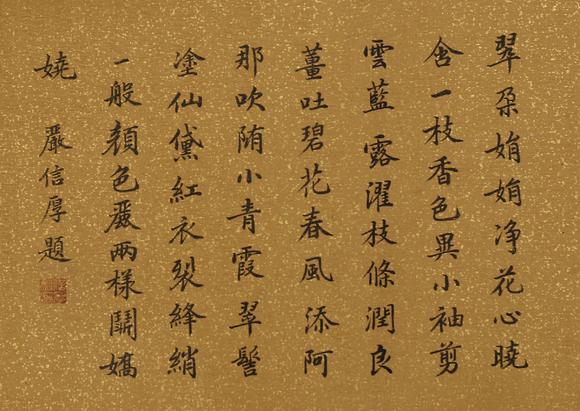 翠朵娟娟净花心曉
含一枝香色異小袖剪
雲藍露濯枝條潤良
薑吐碧花春風添阿
那吹陏小青霞翠髻
塗仙黛紅衣裂縫綃
一般顏色兩樣鬪嬌
嬈 嚴信厚題